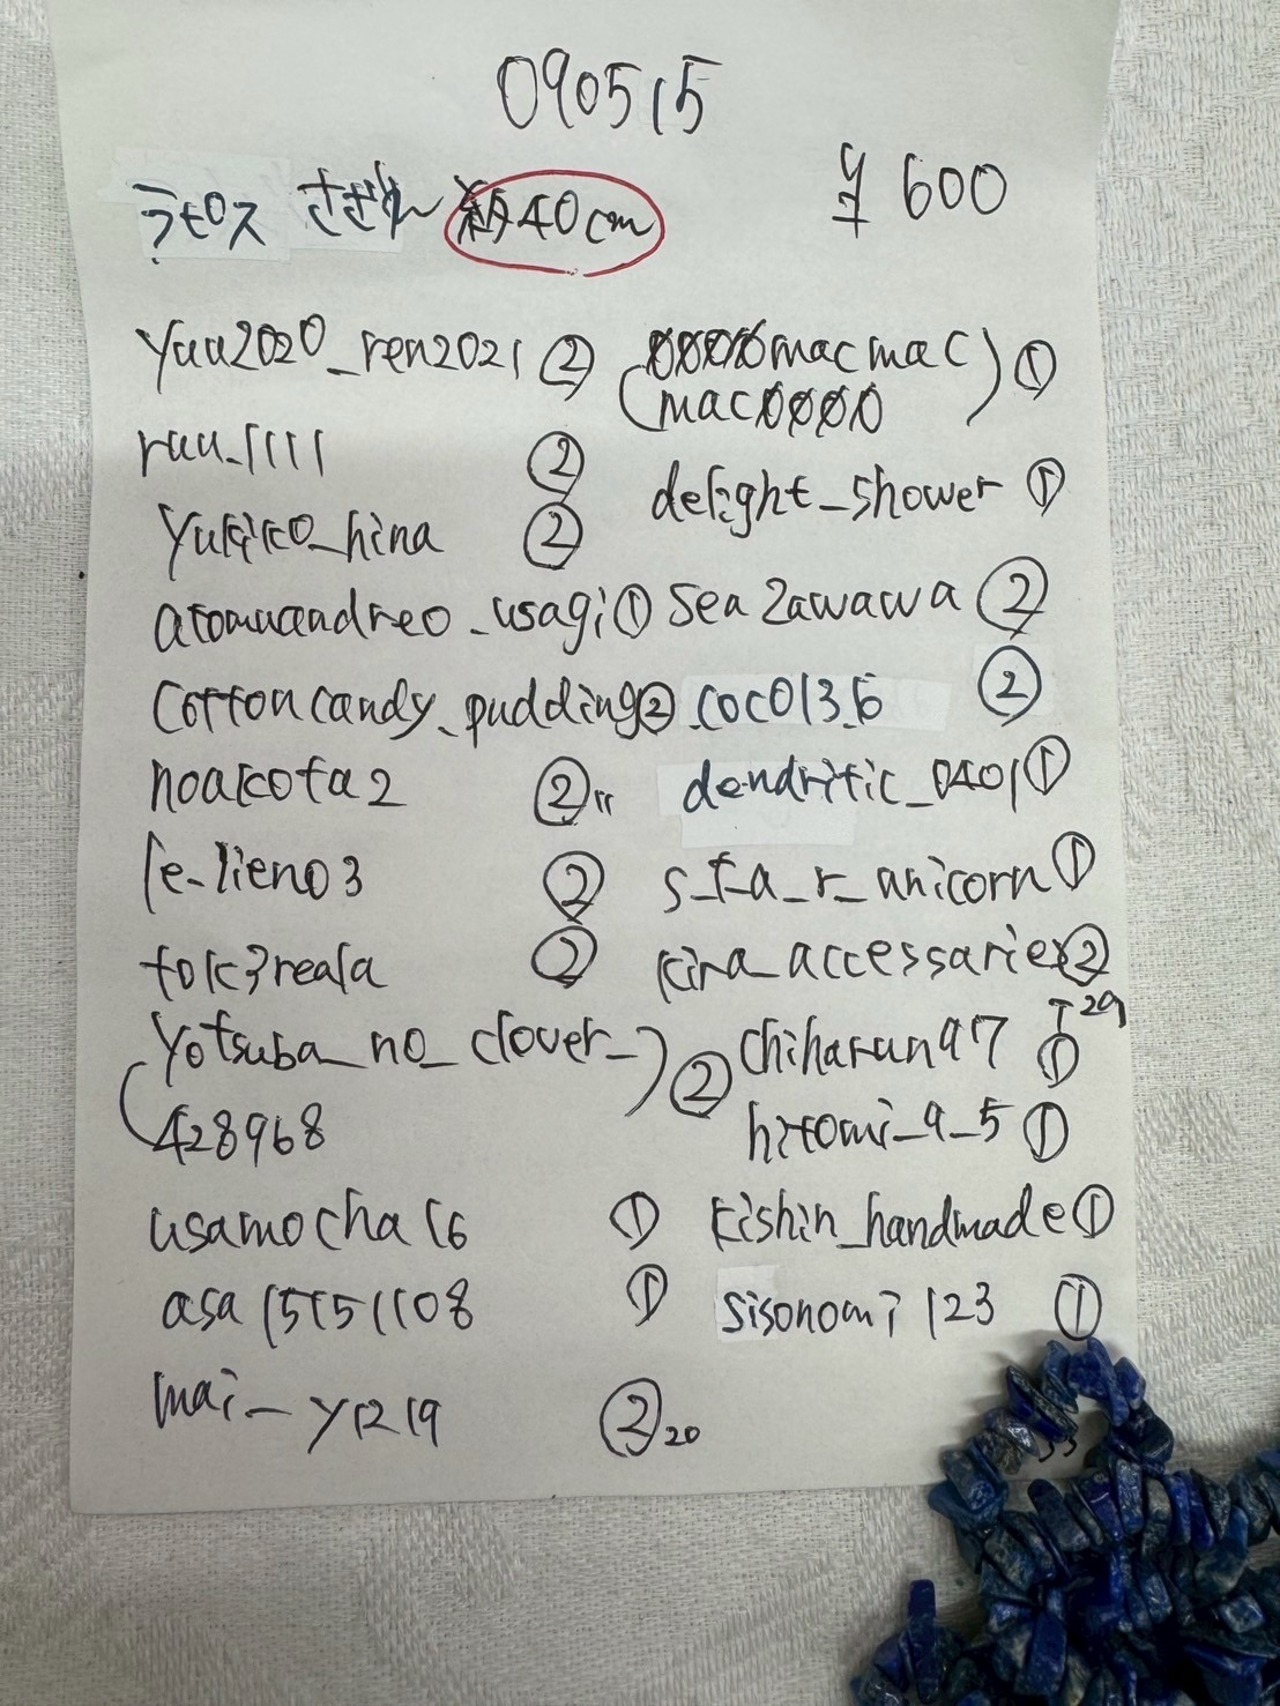 090515
ラピス さざれ 約40cm ¥600
yuu2020_ren2021 ②
ruu_1111 ②
yukiko_hina ②
atomuandreo_usagi ①
cottoncandy_pudding ②
noakota2 ② 11
le_lien03 ②
tok3reala ②
(yotsuba_no_clover_
428968) ②
usamocha16 ①
asa15151108 ①
mai_y1219 ② 20
(0000macmac
mac0000) ①
delight_shower ①
sea2awawa ②
coco13.6 ②
dendritic_0401 ①
s_t_a_r_unicorn ①
kira_accessaries ②
chiharun97 ① 29
hitomi_9_5 ①
kishin_handmade ①
sisonomi123 ①